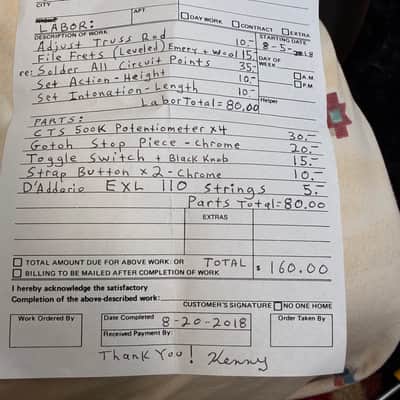 CITY
APT
LABOR:
DAY WORK CONTRACT EXTRA
DESCRIPTION OF WORK
STARTING DATE
Adjust Truss Rod 10.-
8-5-2018
File Frets (Leveled) Emery + Wool 15.-
DAY OF WEEK
re: Solder All Circuit Points 35.-
Set Action - Height 10.-
A.M.
P.M.
Set Intonation - Length 10.-
Labor Total = 80.00
Helper
PARTS:
CTS 500K Potentiometer x4 30.-
Gotoh Stop Piece - Chrome 20.-
Toggle Switch + Black Knob 15.-
Strap Button x 2 - Chrome 10.-
D'Addario EXL 110 Strings 5.-
Parts Total = 80.00
EXTRAS
TOTAL AMOUNT DUE FOR ABOVE WORK: OR TOTAL $ 160.00
BILLING TO BE MAILED AFTER COMPLETION OF WORK
I hereby acknowledge the satisfactory
Completion of the above-described work:
CUSTOMER'S SIGNATURE NO ONE HOME
Work Ordered By
Date Completed
Order Taken By
8-20-2018
Received Payment By:
Thank You! Kenny